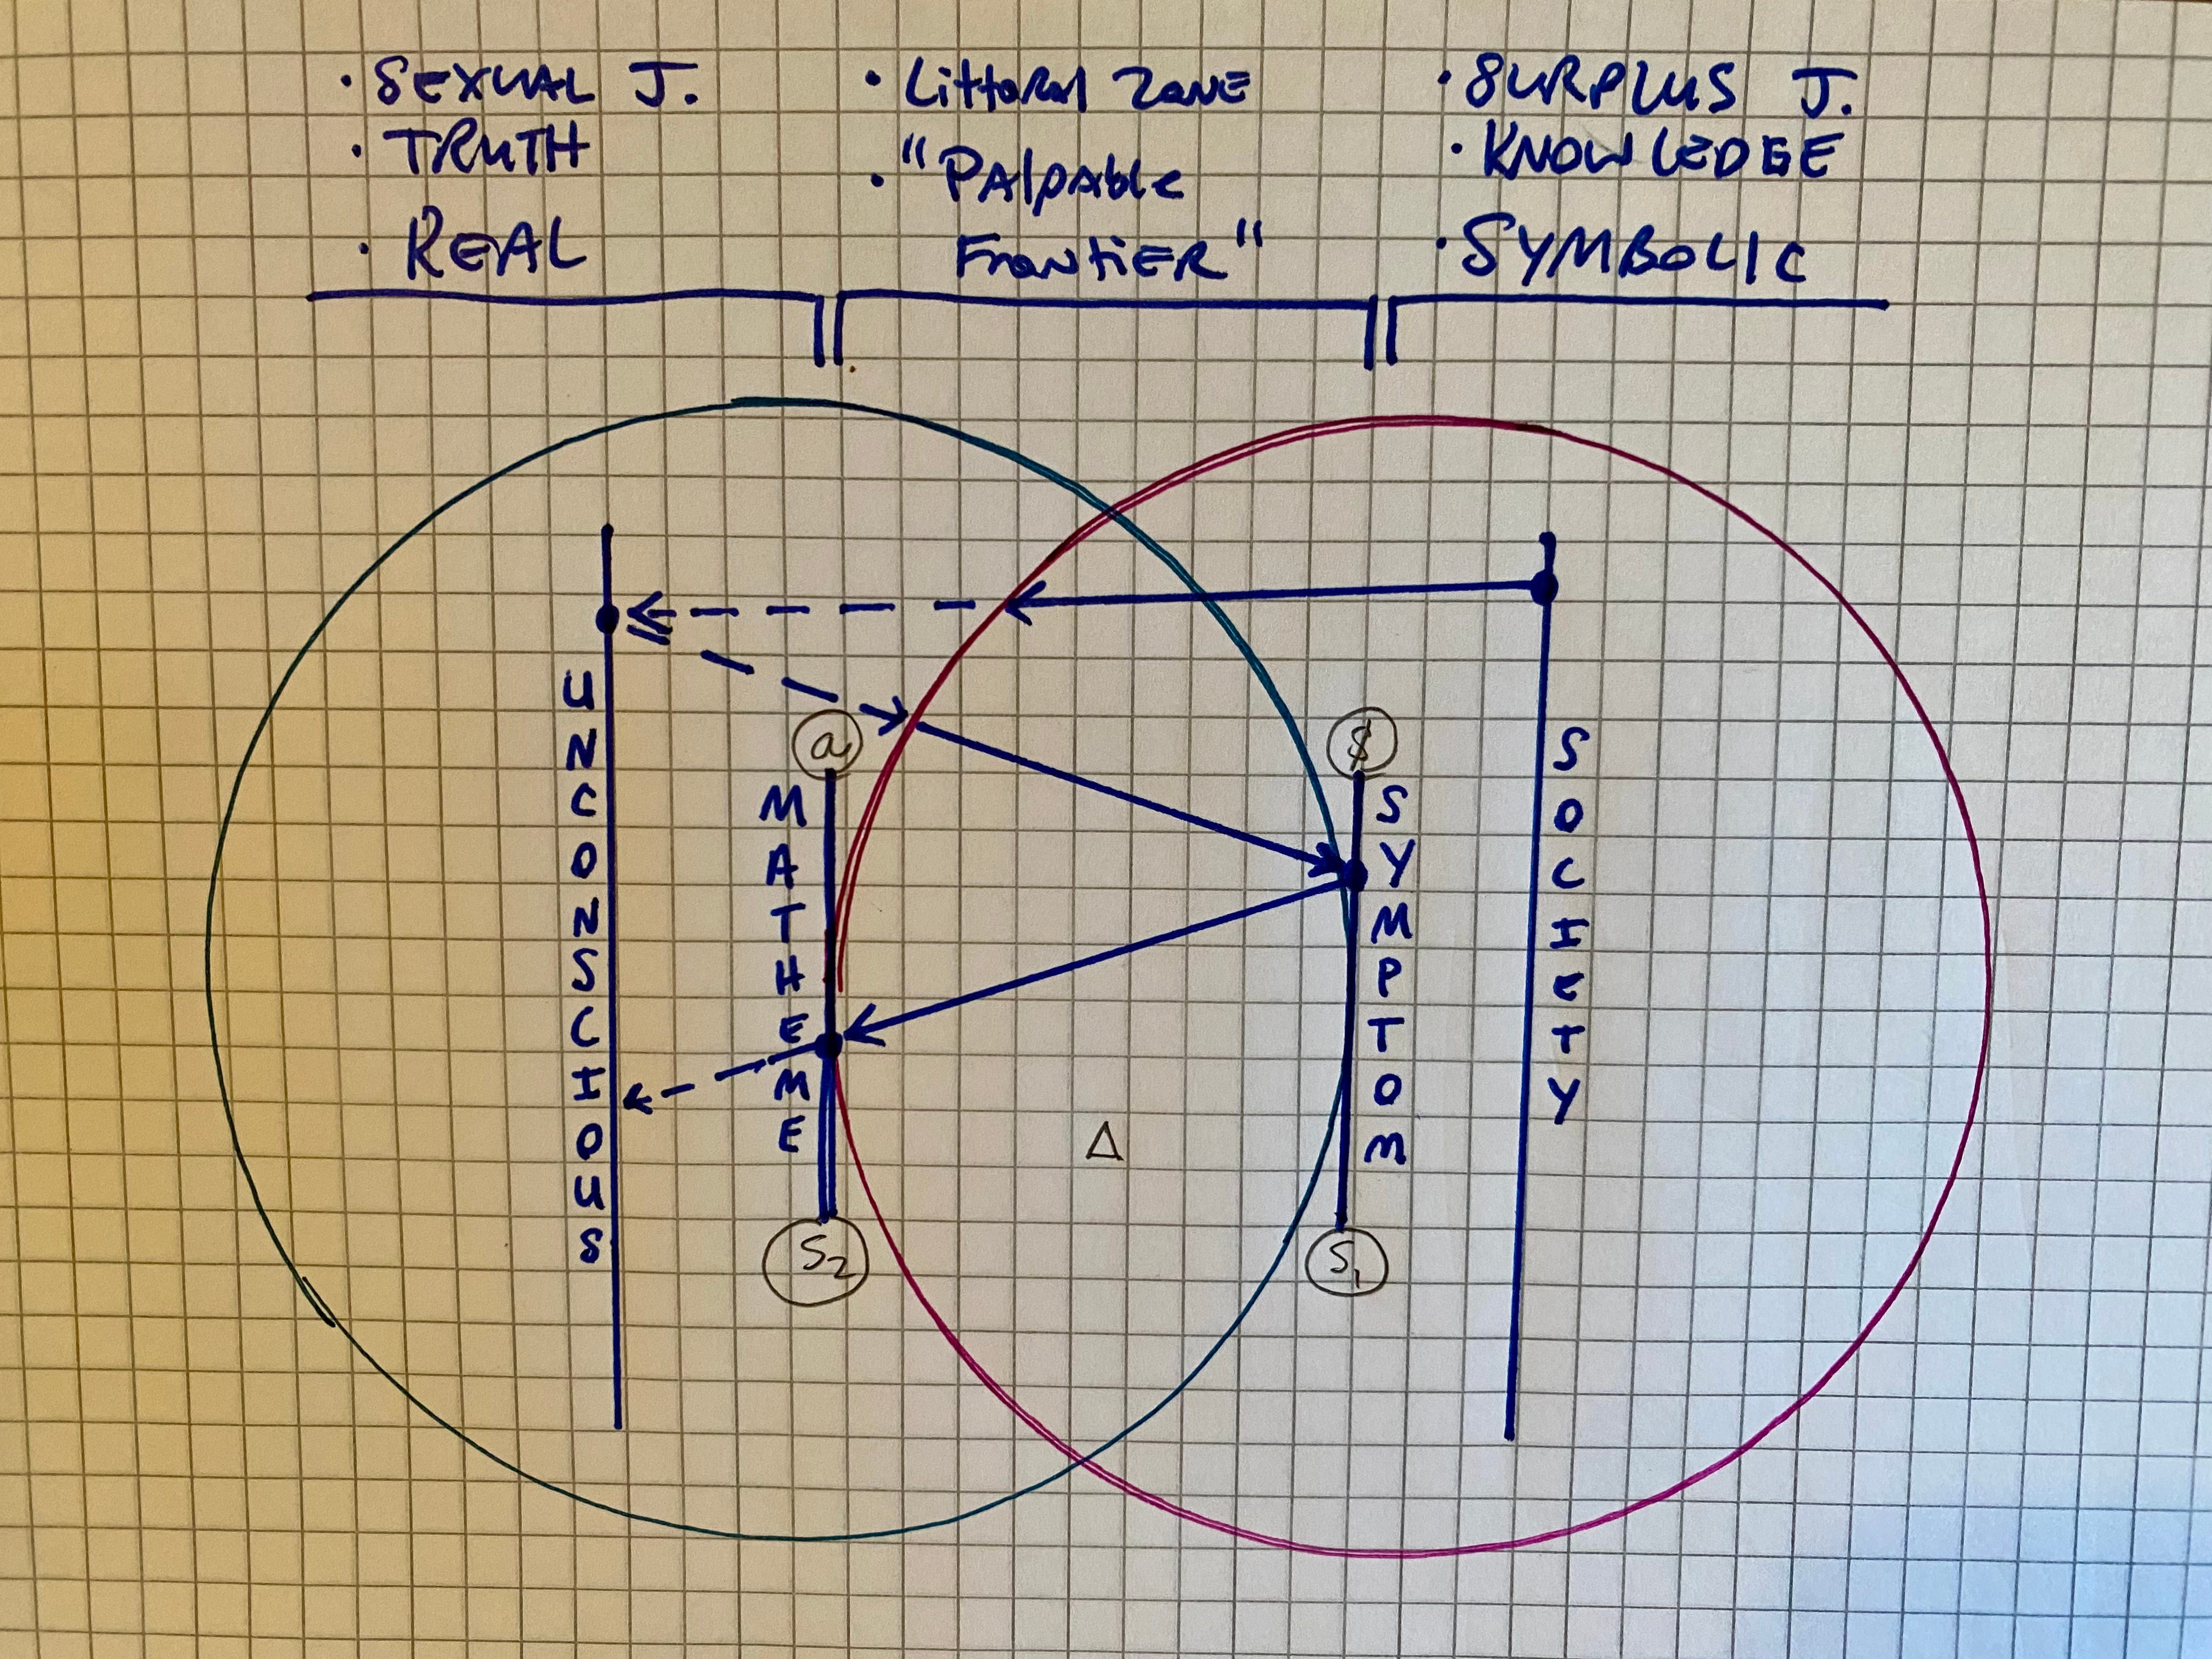 • SEXUAL J.
• TRUTH
• REAL
• Littoral Zone
• "Palpable
Frontier"
• SURPLUS J.
• KNOWLEDGE
• SYMBOLIC
UNCONSCIOUS
a
MATHEME
S2
Δ
$
SYMPTOM
S1
SOCIETY